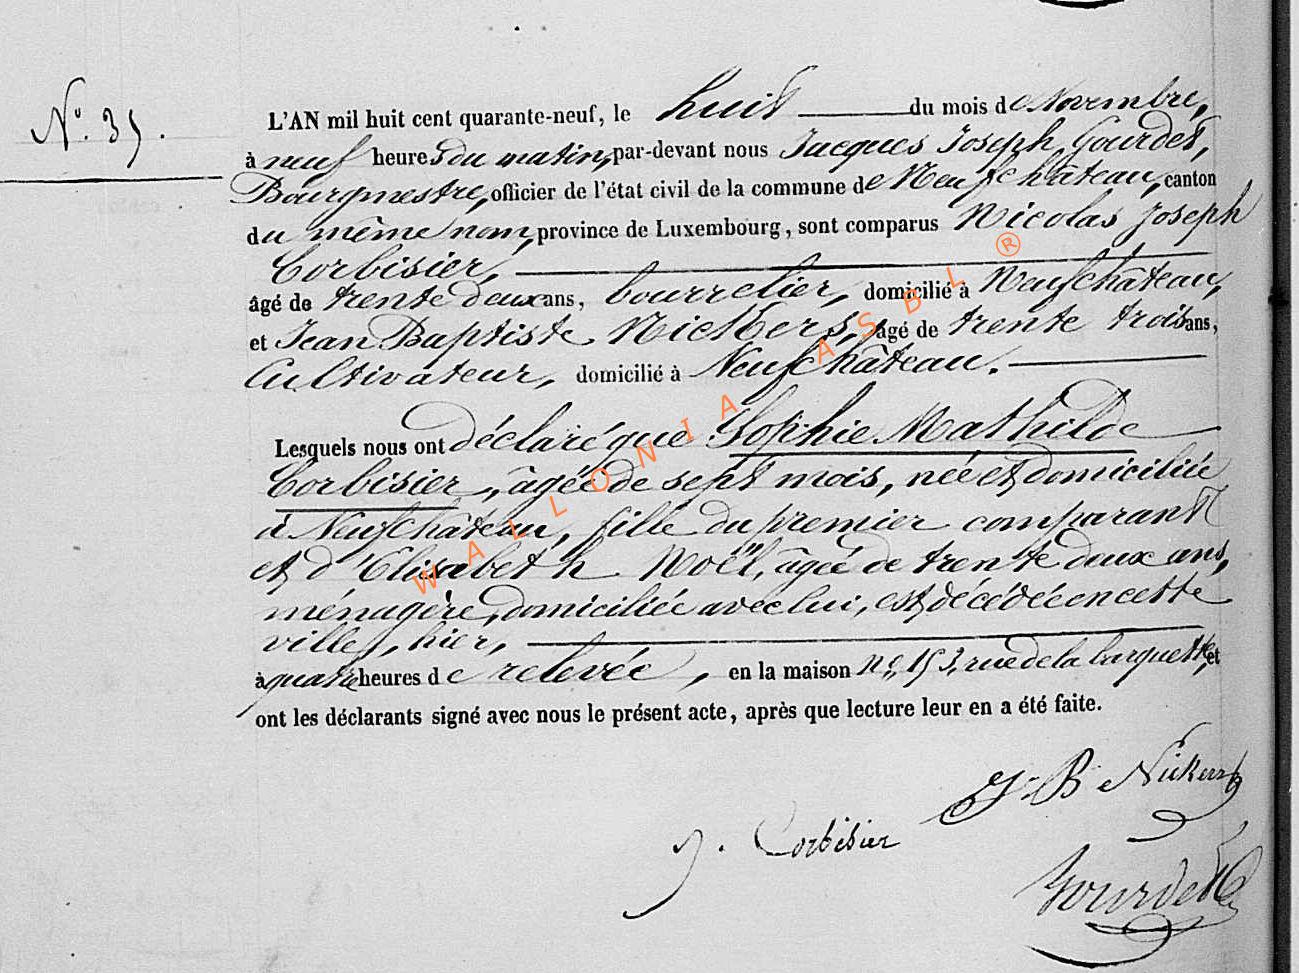 N.° 35.
L'AN mil huit cent quarante-neuf, le huit du mois de Novembre,
à neuf heures du matin, par-devant nous Jacques Joseph Gourdet,
Bourgmestre, officier de l'état civil de la commune de Neufchâteau, canton
du même nom, province de Luxembourg, sont comparus Nicolas Joseph
Corbisier,
âgé de trente deux ans, bourrelier, domicilié à Neufchâteau,
et Jean Baptiste Nickers, âgé de trente trois ans,
Cultivateur, domicilié à Neufchâteau.
Lesquels nous ont déclaré que Sophie Mathilde
Corbisier, âgée de sept mois, née et domiciliée
à Neufchâteau, fille du premier comparant
et d'Elisabeth Noël, âgée de trente deux ans,
ménagère, domiciliée avec lui, est décédée en cette
ville, hier,
à quatre heures de relevée, en la maison n.° 153, rue de la barquette, et
ont les déclarants signé avec nous le présent acte, après que lecture leur en a été faite.
J-B Nickers
J. Corbisier
Gourdet
WALLONIA ASBL ®